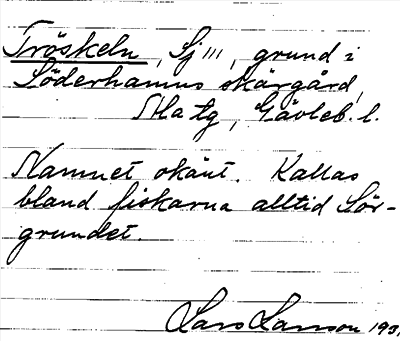 Tröskeln, Sj III, grund i
Söderhamns skärgård,
Ala tg, Gävleb. l.
Namnet okänt. Kallas
bland fiskarna alltid Sör-
grundet.
Lars Larsson 193.